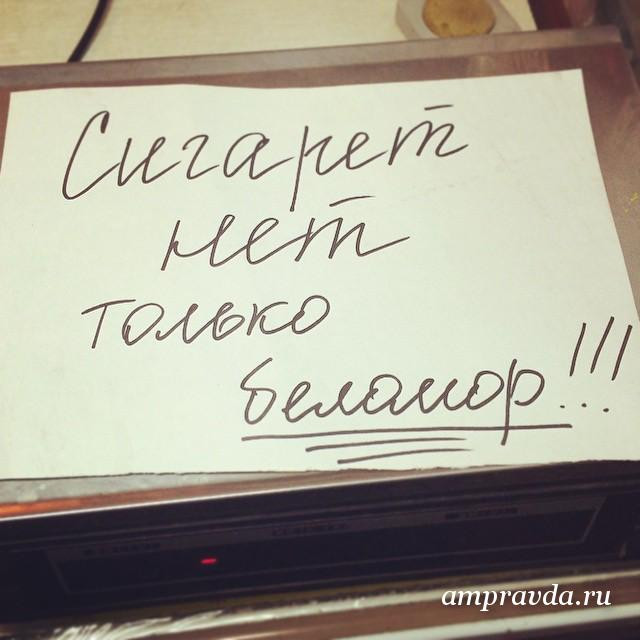 Сигарет
нет
только
беламор!!!
ampravda.ru